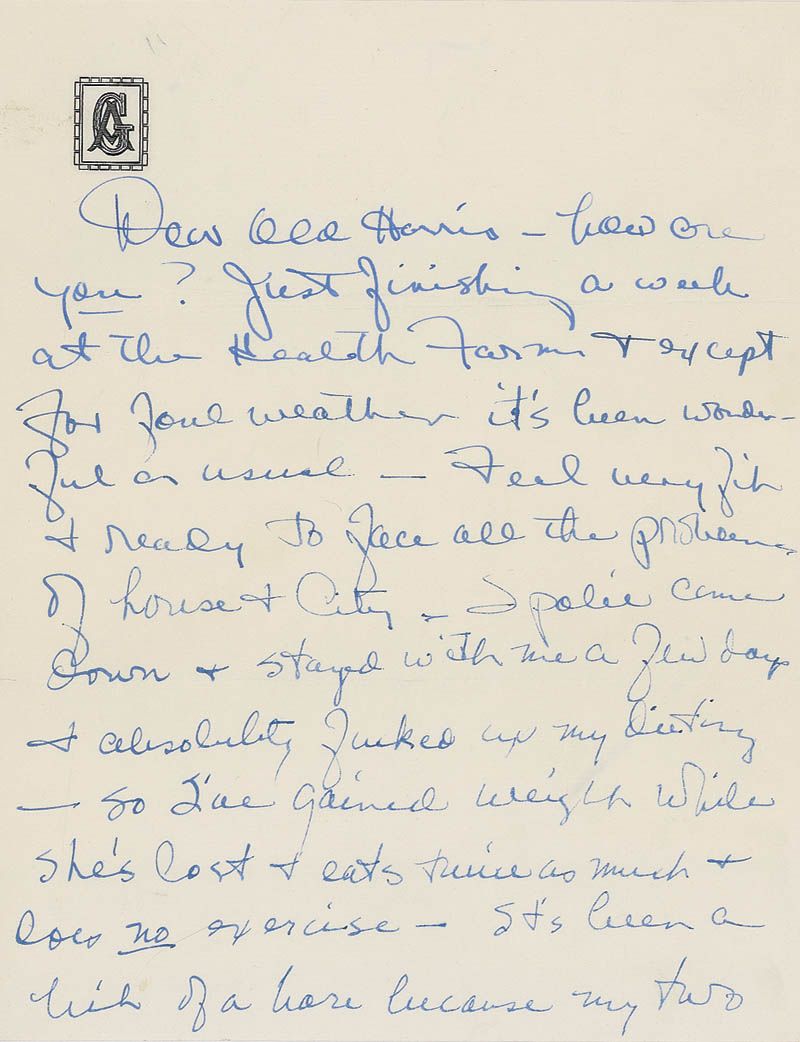 AG
Dear Old Harris – how are
you? Just finishing a week
at the Health Farm & except
for foul weather it's been wonder-
ful as usual — Feel very fit
& ready to face all the problems
of house & City – came
down & stayed with me a few days
& absolutely fucked up my dieting
— so I've gained weight while
she's lost & eats twice as much &
does no exercise — It's been a
bit of a bore because my two